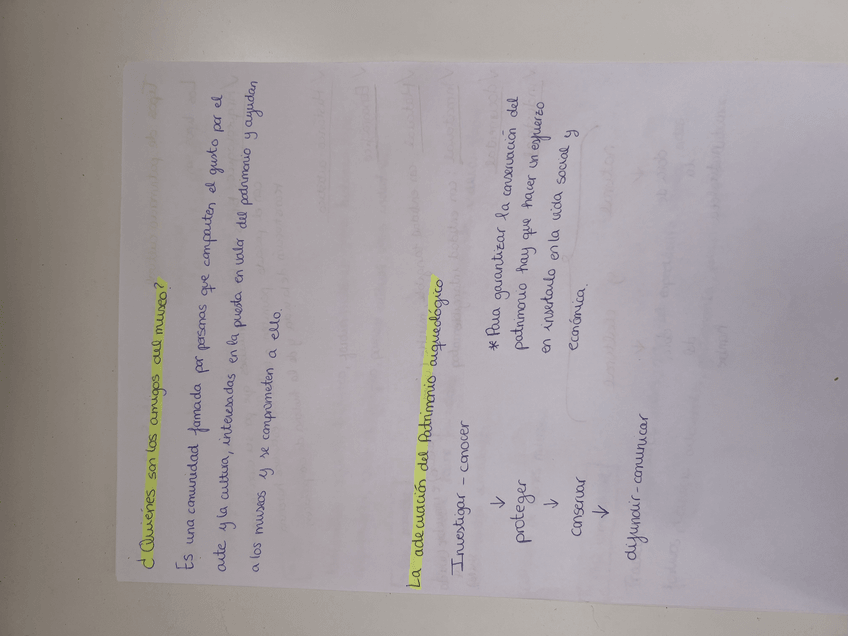 ¿Quiénes son los amigos del museo?
Es una comunidad formada por personas que comparten el gusto por el
arte y la cultura, interesadas en la puesta en valor del patrimonio y ayudan
a los museos y se comprometen a ello.
La adecuación del Patrimonio arqueológico
Investigar - conocer
↓
proteger
↓
conservar
↓
difundir - comunicar
* Para garantizar la conservación del
patrimonio hay que hacer un esfuerzo
en insertarlo en la vida social y
económica.